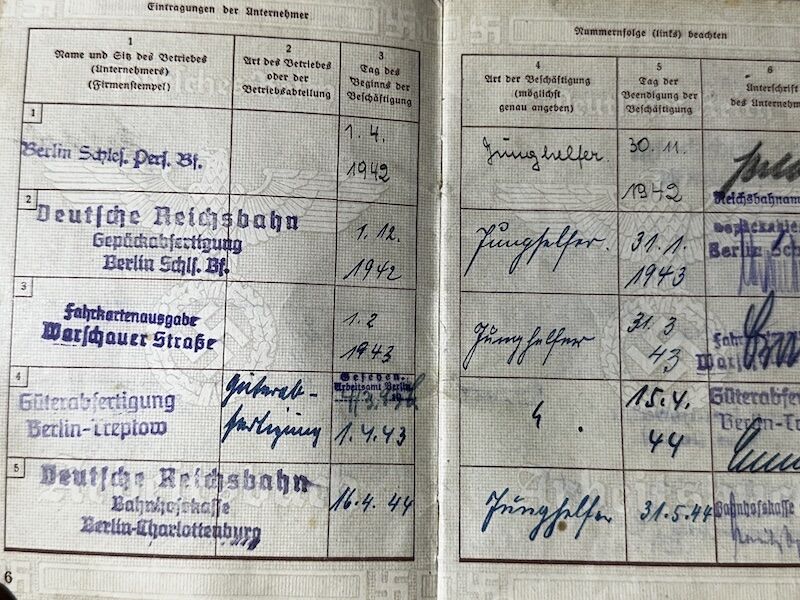 Eintragungen der Unternehmer
1
Name und Sitz des Betriebes
(Unternehmers)
(Firmenstempel)
2
Art des Betriebes
oder der
Betriebsabteilung
3
Tag des
Beginns der
Beschäftigung
1
Berlin Schles. Pers. Bf.
1. 4.
1942
2
Deutsche Reichsbahn
Gepäckabfertigung
Berlin Schls. Bf.
1. 12.
1942
3
Fahrkartenausgabe
Warschauer Straße
1. 2
1943
4
Güterabfertigung
Berlin-Treptow
Güterab-
fertigung
Gesehen.
Arbeitsamt Berlin
1.4.43
5
Deutsche Reichsbahn
Bahnhofskasse
Berlin-Charlottenburg
16.4. 44
6
Nummernfolge (links) beachten
4
Art der Beschäftigung
(möglichst
genau angeben)
5
Tag der
Beendigung der
Beschäftigung
6
Unterschrift
des Unternehm
Junghelfer.
30. 11.
1942
Reichsbahnam
Junghelfer.
31. 1.
1943
Gepäckabfer
Berlin Sch
Junghelfer
31. 3
43
Fahr
Wars
15.4.
44
Güterabferti
Berlin-Tre
Junghelfer
31.5.44
Bahnhofskasse